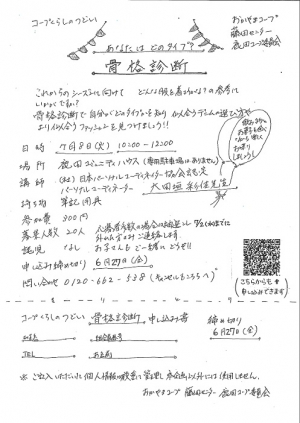 コープくらしのつどい
おかやまコープ
藤田センター
鹿田コープ委員会
あなたは どのタイプ?
骨格診断
これからのシーズンに向けて どんな服を着ようかな?の参考に
いかがですか?
骨格診断で自分がどのタイプかを知り 似合うデザインの選び方や
より似合うファッションを見つけましょう!!
日時 7月8日(火) 10:00~12:00
場所 鹿田コミュニティハウス (専用駐車場はありません)
講師 (社)日本パーソナルコーディネーター協会認定
パーソナルコーディネーター 大田垣
持ち物 筆記用具
参加費 300円
募集人数 20人
託児 なし
お子さんもご一緒にどうぞ!!
申し込み締め切り 6月27日(金)
問い合わせ 0120-662-538 (キャンセルもこちらへ)
(こちらからも
申し込みできます)
コープくらしのつどい 骨格診断 申し込み書 締め切り
6月27日(金)
TEL お名前
※ご記入いただいた個人情報は厳重に管理し、本企画以外には使用しません。
おかやまコープ 藤田センター 鹿田コープ委員会